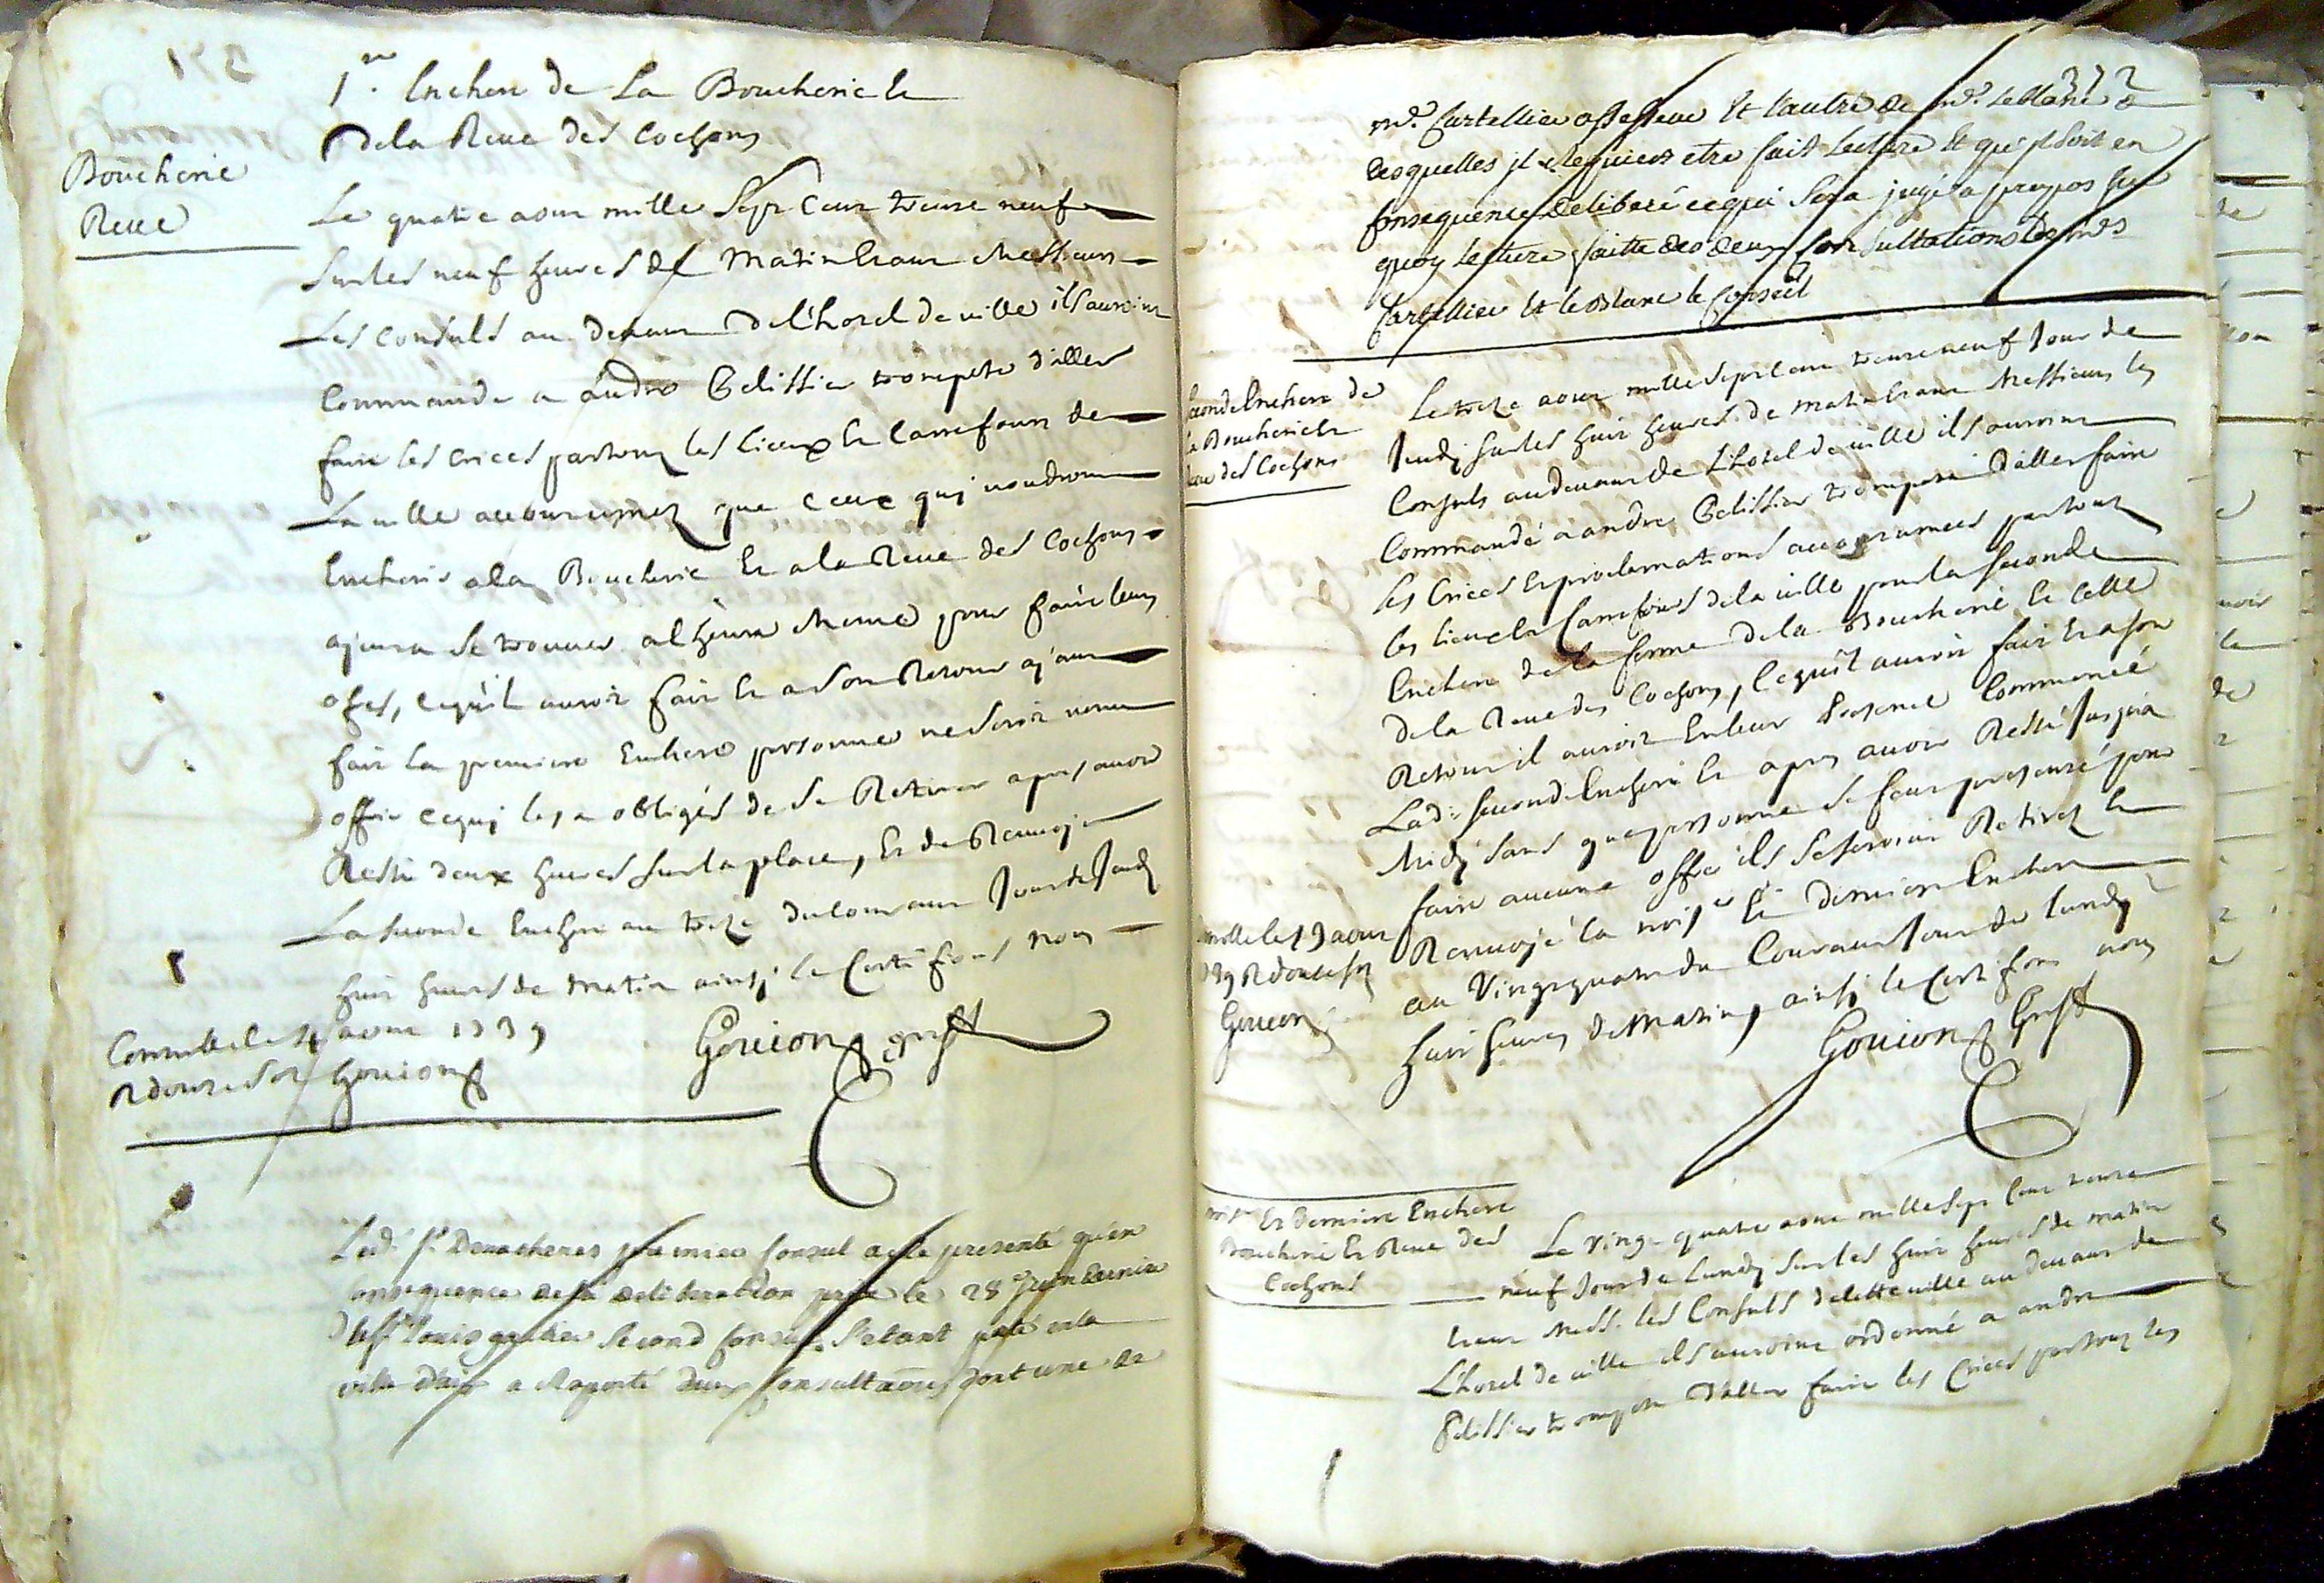 1re. Enchere de La Boucherie Et
de la Reve des Cochons
Boucherie
Reve
Le quatre aout mille Sept Cent trente neuf
Sur les neuf heures de Matin Etant Messieurs
Les Consuls au devant de l'hotel de ville ils auroint
Commandé a andre Pelissier trompete d'aller
faire les criees partous les lieux Et Carrefours de
La ville accoutumez que Ceux qui voudront
Encherir a la Boucherie Et a la Reve des Cochons
ajent a se trouver a l'heure Meme pour faire leurs
ofres, cequ'il auroit fait Et a son Retour ajant
fait la premiere Enchere personne ne seroit venu
offrir cequi les a obligés de se Retirer apres avoir
Resté deux heures sur la place, Et de Renvojer
La seconde Enchere au treze du courant Jour de Jeudj
huit heures de matin ainsj le Certifions nous
Gouiong greff
Controllé le 4 aout 1739
R douze sols Gouiong
Led. sr. premier Consul a represanté qu'en
consequence de la deliberation prise le 28 Juin dernier
le sr. Louis gautier Second Consul S'etant porté en la
ville d'aix a Raporté deux Consultations dont une de
372
mr. Cartellier assesseur Et l'autre de mr. Leblanc
desquelles jl Requiert etre fait Lecture Et qu'jl soit en
Consequence deliberé ce qui sera jugé a propos sur
quoy Lecture faitte des deux Consultations des mrs
Cartellier Et leblanc le Conseil
seconde Enchere de
la Boucherie Et
Reve des Cochons
Le treze aout mille Sept Cent trente neuf Jour de
Jeudj sur les huit heures de matin Etant Messieurs les
Consuls au devant de L'hotel de ville ils auroint
Commandé a andre Pelissier trompete d'aller faire
les Criees Et proclamations accoutumees partous
les lieux Et Carrefours de la ville pour la seconde
Enchere de la ferme de la Boucherie Et Celle
de la Reve des Cochons, Cequ'il auroit fait Et a son
Retour il auroit En leur Presence Commencé
Lade. seconde Enchere Et apres avoir Resté Jusqu'a
Midj sans que personne se feut presenté pour
faire aucune offre ils se seroint Retirez Et
Renvojé la troise. Et Derniere Enchere
au Vingt quatre du Courant Jour de lundj
huit heures de Matin, ainsj le Certifions nous
Gouiong Greff
Controllé le 19 aout
1739 R douze sols
Gouiong
troise. Et Derniere Enchere
Boucherie Et Reve des
Cochons
Le vingt quatre aout mille sept Cent trente
neuf Jour de Lundj sur les huit heures de matin
Etant Mess. les Consuls de cette ville au devant de
L'hotel de ville ils auroint ordonné a andre
Pelissier trompete d'aller faire les Criees partous les